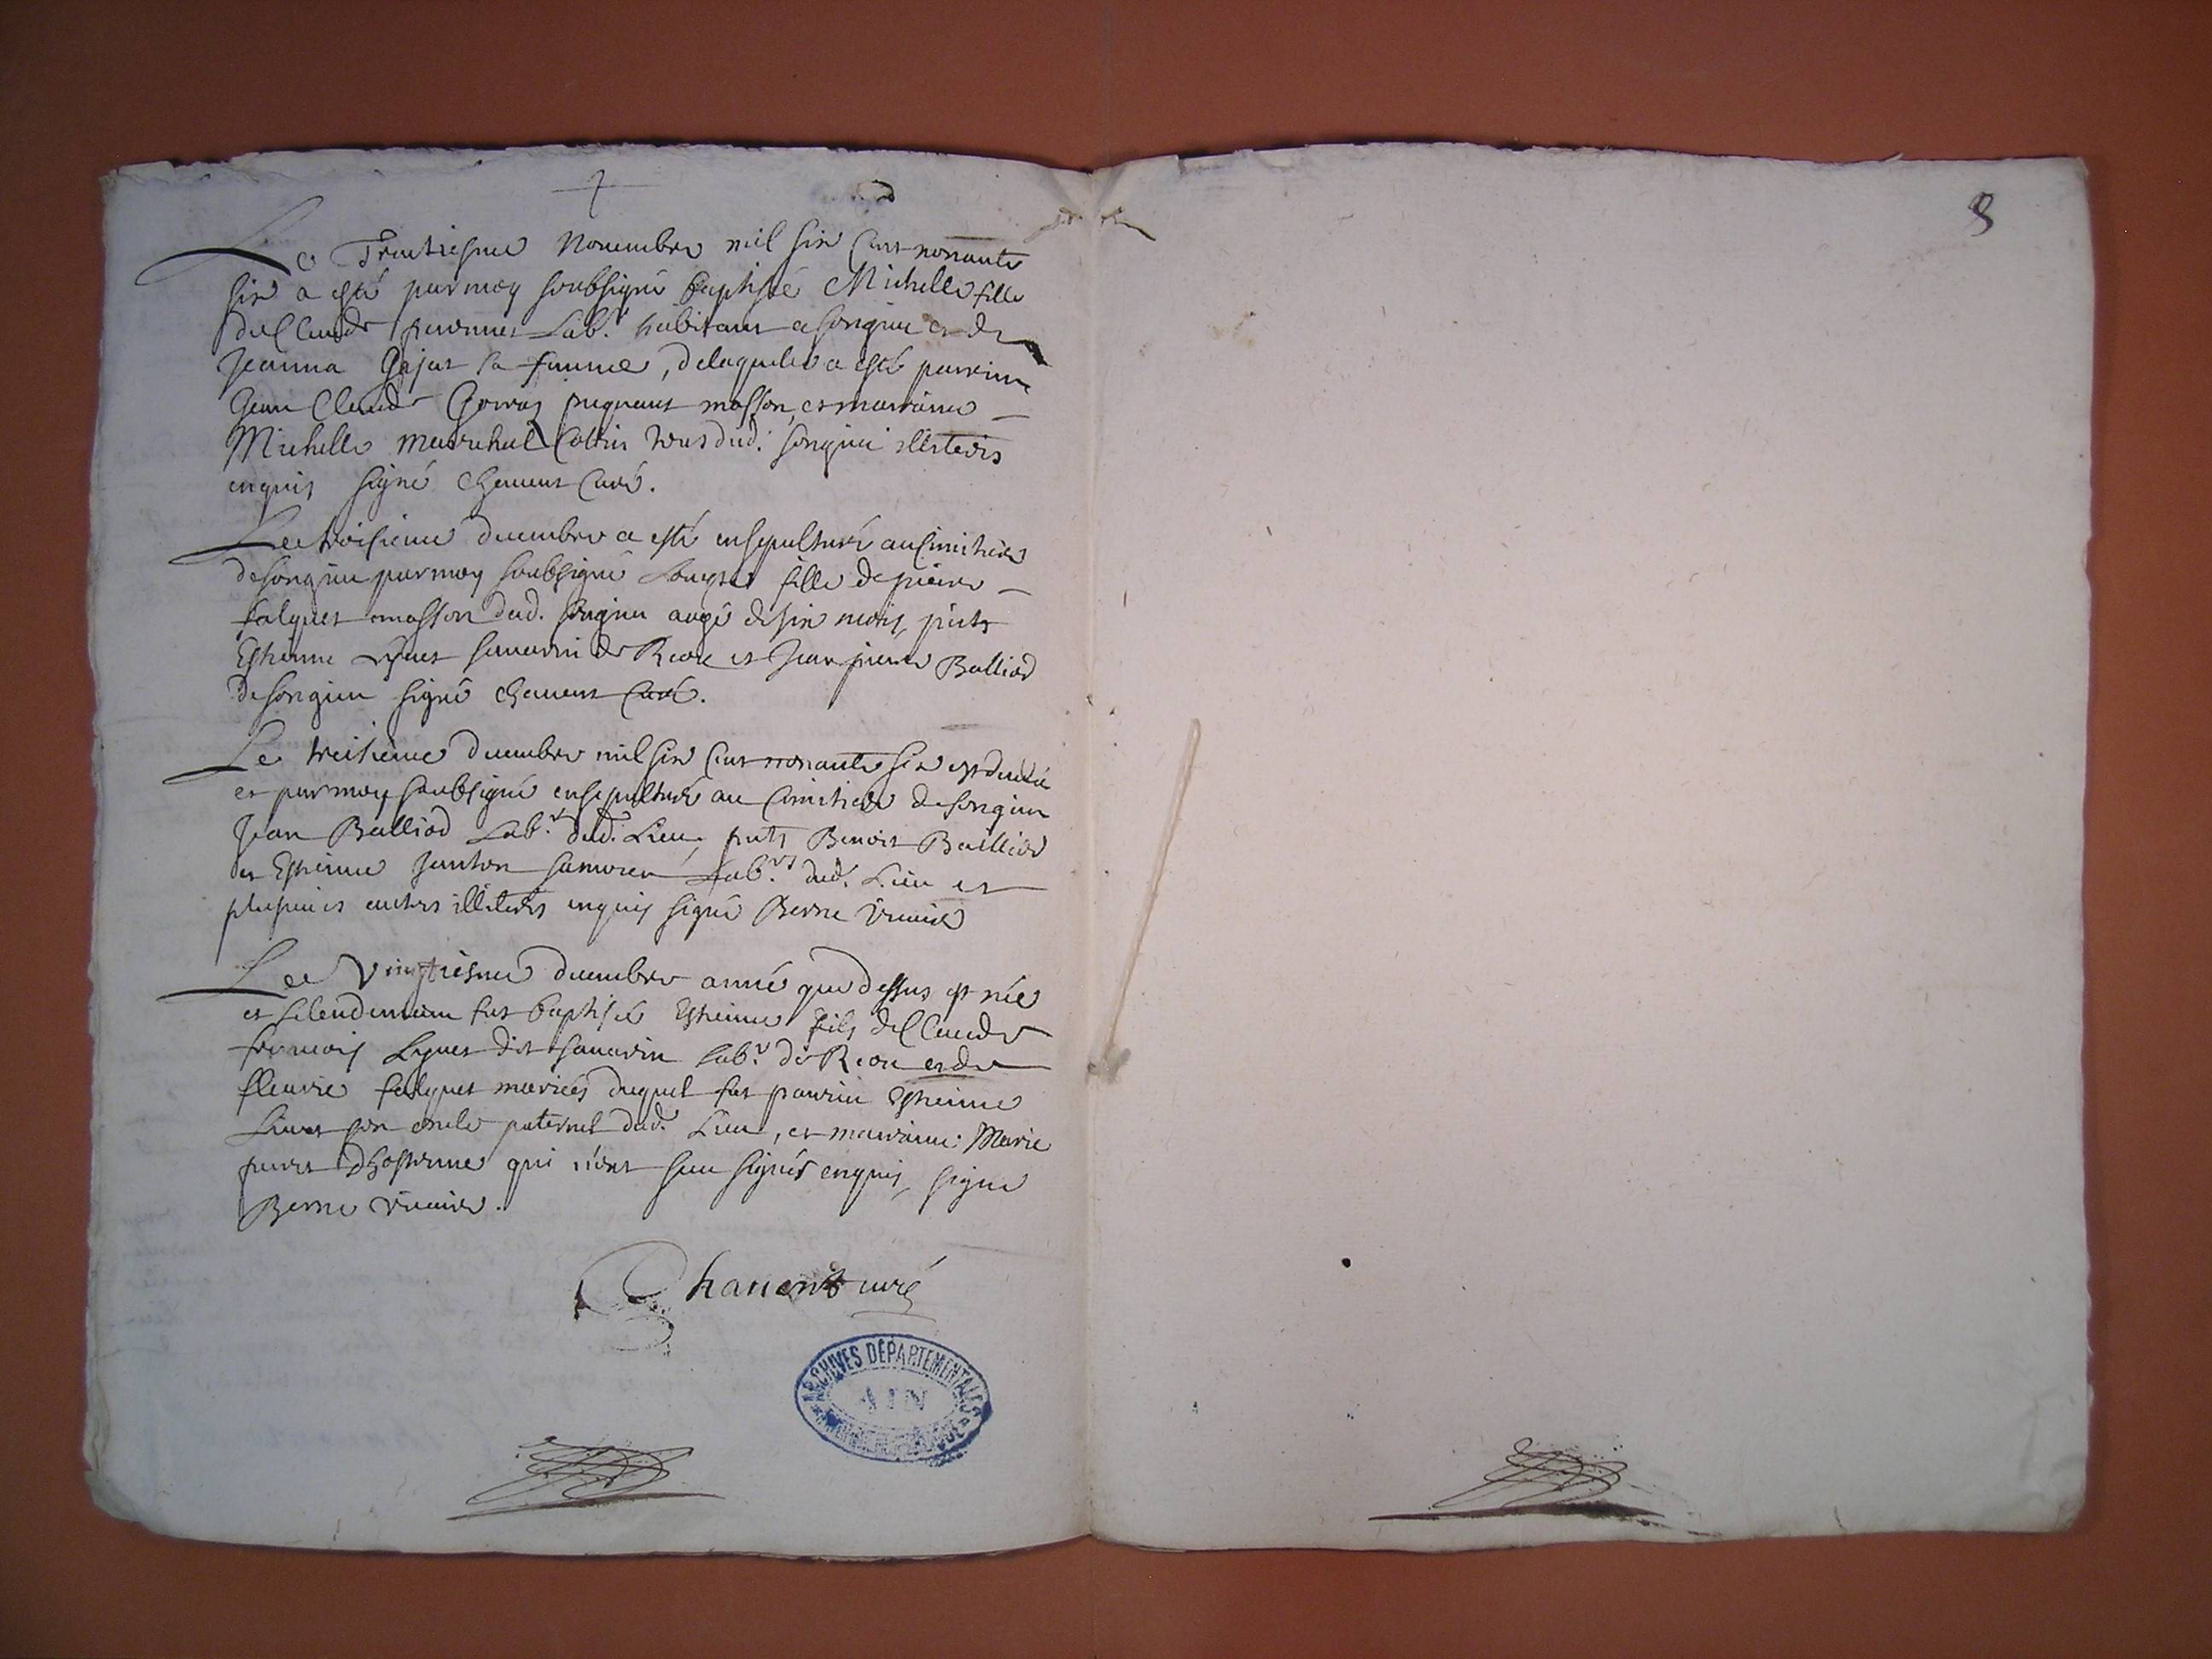 Le Trentiesme Novembre mil six cent nonante
six a esté par moy soubsigné baptisée Michelle fille
de Claude perrenet Lab.r habitant a songieu et de
Jeanna Gojat sa femme, de laquelle a esté parrin
Jean Claude Gorraz paignant masson, et marraine
Michelle mareschal Cottin tous dud. songieu illiterés
enquis signé Chavent Curé.
Le troisieme decembre a esté ensepulturé au Cimitiere
de songieu par moy soubsigné fille de pierre
falquet masson dud. songieu aagé de six mois, pnts
Estienne Lyvet savarin de et Jean pierre Balliod
de songieu signé Chavent Curé.
Le treisieme decembre mil six cent nonante six est decedé
et par moy soubsigné ensepulturé au Cimitiere de songieu
Jean Balliod Lab.r dud. Lieu, pnts Benoit Balliod
et Estienne Janton Lab.rs dud. Lieu et
plusieurs autres illiterés enquis signé Berne vicaire
Le Vingtiesme decembre année que dessus est née
et le lendemain fut baptisé Estienne fils de Claude
francois Lyvet dit savarin Lab.r de et de
fleurie falquet mariés duquel fut parrin Estienne
Livet son oncle paternel dud. Lieu, et marraine Marie
qui n'ont sceu signer enquis, signé
Berne vicaire.
Chavent curé
ARCHIVES DÉPARTEMENTALES
AIN
8